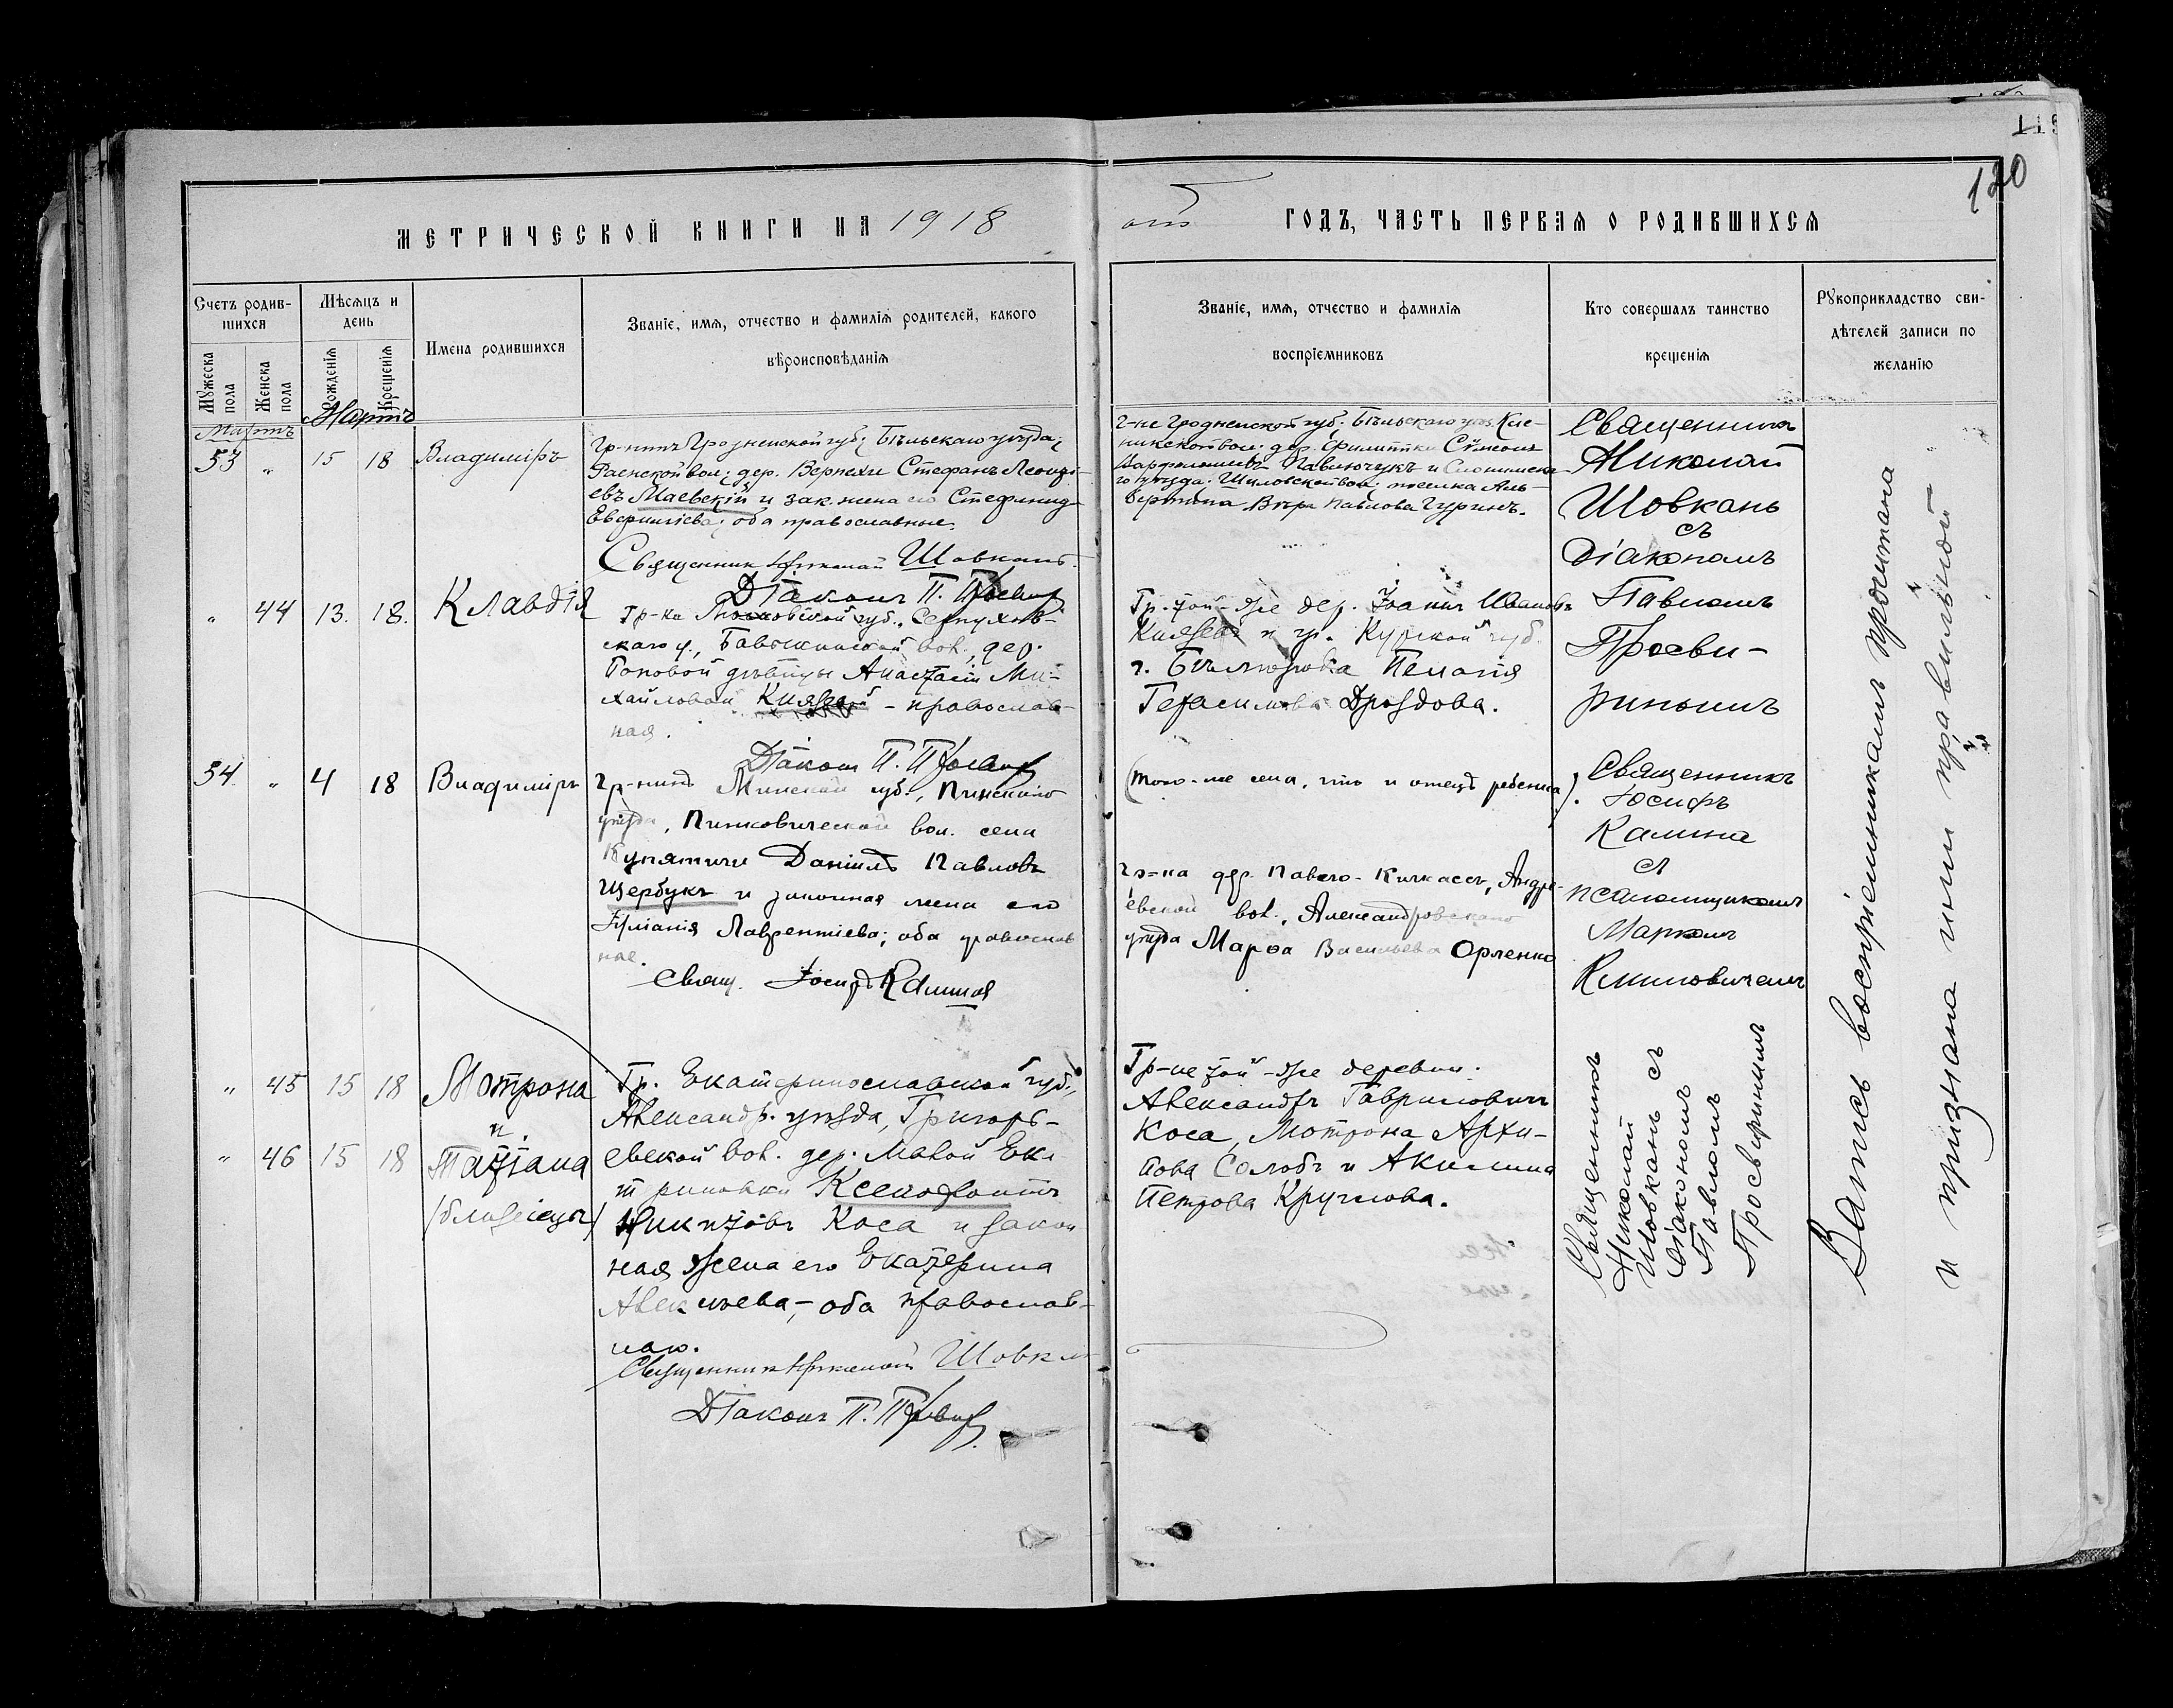 119
120
МЕТРИЧЕСКОЙ КНИГИ НА 1918
ГОДЪ, ЧАСТЬ ПЕРВАЯ О РОДИВШИХСЯ
Счетъ родив-
шихся
Мужеска
пола
Женска
пола
Мѣсяцъ и
день
Рожденія
Крещенія
Имена родившихся
Званіе, имя, отчество и фамилія родителей, какого
вѣроисповѣданія
Званіе, имя, отчество и фамилія
воспріемниковъ
Кто совершалъ таинство
крещенія
Рукоприкладство сви-
дѣтелей записи по
желанію
Мартъ
Мартъ
53 „ 15 18 Владиміръ
Гр-нинъ Гродненской губ; Бѣльскаго уѣзда;
Раенской вол; дер. Верпехи Стефанъ Леонтi-
евъ Маевскій и зак. жена его Стефанида
оба православные.
Священникъ Николай Шовкань
Діаконъ П. Просвир
Г-не Гродненской губ. Бѣльскаго уѣз. Кле-
никской вол. дер. Филипки Сѵмеонъ
Павлючукъ и Слонимска-
го уѣзда. Шиловской вол. поселка Аль-
бертина Вѣра Павлова Гуринъ.
Священникъ
Николай
Шовкань
съ
Діакономъ
Павломъ
Просви-
ринымъ
„ 44 13. 18. Клавдія
Гр-ка Московской губ., Серпухов-
скаго у., вол., дер.
дѣвицы Анастасіи Ми-
хайловой Князевой - православ-
ная.
Діаконъ П. Просвир
Гр. той-же дер. Іоаннъ Ивановъ
Князевъ и гр. Курской губ.
г. Бѣлгорода Пелагія
Герасимова Дроздова.
54 „ 4 18 Владиміръ
Гр-нинъ Минской губ., Пинскаго
уѣзда, Пинковической вол. села
Купятичи Даніилъ Павловъ
Щербукъ и законная жена его
Іуліанія Лаврентіева; оба православ
ные.
Свящ. Іосифъ Калина
(того-же села, что и отецъ ребенка).
Гр-ка дер. Павло-Кичкассъ, Андре-
евской вол., Александровскаго
уѣзда Марѳа Васильева Орленко
Священникъ
Іосифъ
Калина
съ
псаломщикомъ
Маркомъ
Климовичемъ
„ 45 15 18 Мотрона
и
„ 46 15 18 Татіана
(близнецы)
Гр. Екатеринославской губ.,
Александр. уѣзда, Григорь-
евской вол. дер. Малой Ека
териновки Ксенофонтъ
Никитовъ Коса и закон
ная жена его Екатерина
Алексѣева,- оба православ-
ные.
Священникъ Николай Шовкань
Діаконъ П. Просвир
Гр-не той-же деревни.
Александръ Гавриловичъ
Коса, Мотрона Архи-
пова Солобъ и Акилина
Петрова Круглова.
Священникъ
Николай
Шовкань съ
Діакономъ
Павломъ
Просвиринымъ
Запись воспріемникамъ прочитана
и признана ими правильной